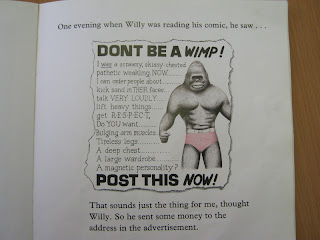 One evening when Willy was reading his comic, he saw . . .
DON'T BE A WIMP!
I was a scrawny, skinny-chested
pathetic weakling NOW......
I can order people about......
kick sand in THEIR faces...
talk VERY LOUDLY.....
lift heavy things.....
get R.E.S.P.E.C.T.
Do YOU want.......
Bulging arm muscles...
Tireless legs.......
A deep chest......
A large wardrobe......
A magnetic personality?
POST THIS NOW!
That sounds just the thing for me, thought
Willy. So he sent some money to the
address in the advertisement.